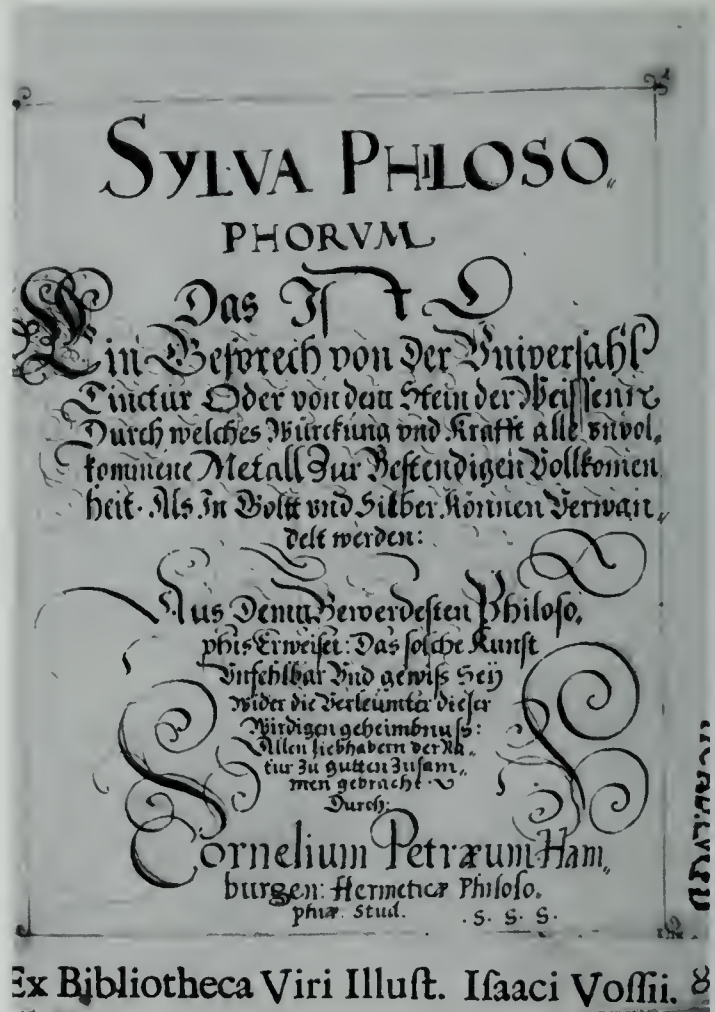 SYLVA PHILOSO„
PHORVM
Das Ist
Ein Gesprech von Der Vniversahl
Tinctur Oder von dem Stein der Weissen
Durch welches Würckung vnd Krafft alle vnvol„
kommene Metall Zur Bestendigen Vollkomen
heit. Als In Goltt vnd Silber Können Verwan„
delt werden:
Aus Denen Bewerdesten Philoso„
phis Erweiset: Das solche Kunst
Vnfehlbar Vnd gewiss Seÿ
wider die Verleumter dieser
Wirdigen geheimbnuss:
Allen liebhabern der Na„
tur Zu gutten Zusam„
men gebracht
Durch:
Cornelium Petræum Ham„
burgen: Hermeticæ Philoso„
phiæ Stud. . S. S. S.
Ex Bibliotheca Viri Illuſt. Iſaaci Voſſii.